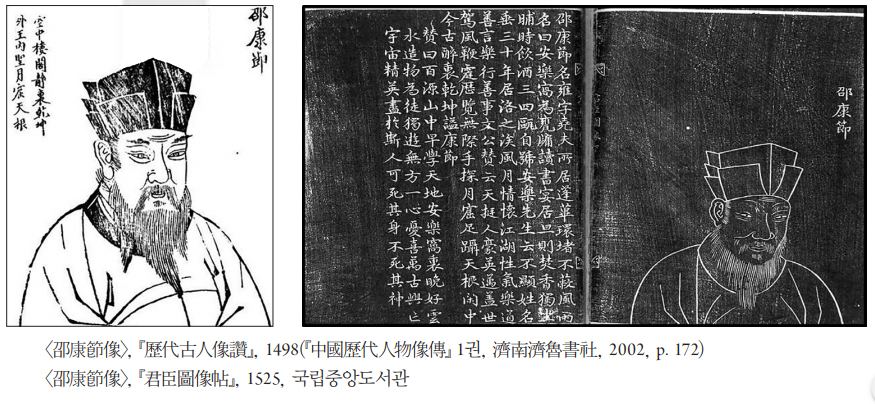 邵康節
空中樓閣靜裏乾坤
外王內聖月窟天根
邵康節
邵康節名雍字堯夫所居蓬蓽環堵不蔽風雨
名曰安樂窩為甕牖讀書宴居旦則焚香獨坐
晡時飲酒三四甌自號安樂先生云不顯姓名
垂三十年居洛之涘風月情懷江湖性氣樂道
善言樂行善事文公贊云天挺人豪英邁蓋世
駕風鞭霆歷覽無際手探月窟足躡天根閑中
今古醉裏乾坤謚康節
贊曰百源山中早學天地安樂窩裏晚好雲
水造物為徒獨遊無方一心憂喜萬古興亡
宇宙精英盡於斯人可死其身不死其神
〈邵康節像〉, 『歷代古人像讚』, 1498(『中國歷代人物像傳』 1권, 濟南濟魯書社, 2002, p. 172)
〈邵康節像〉, 『君臣圖像帖』, 1525, 국립중앙도서관